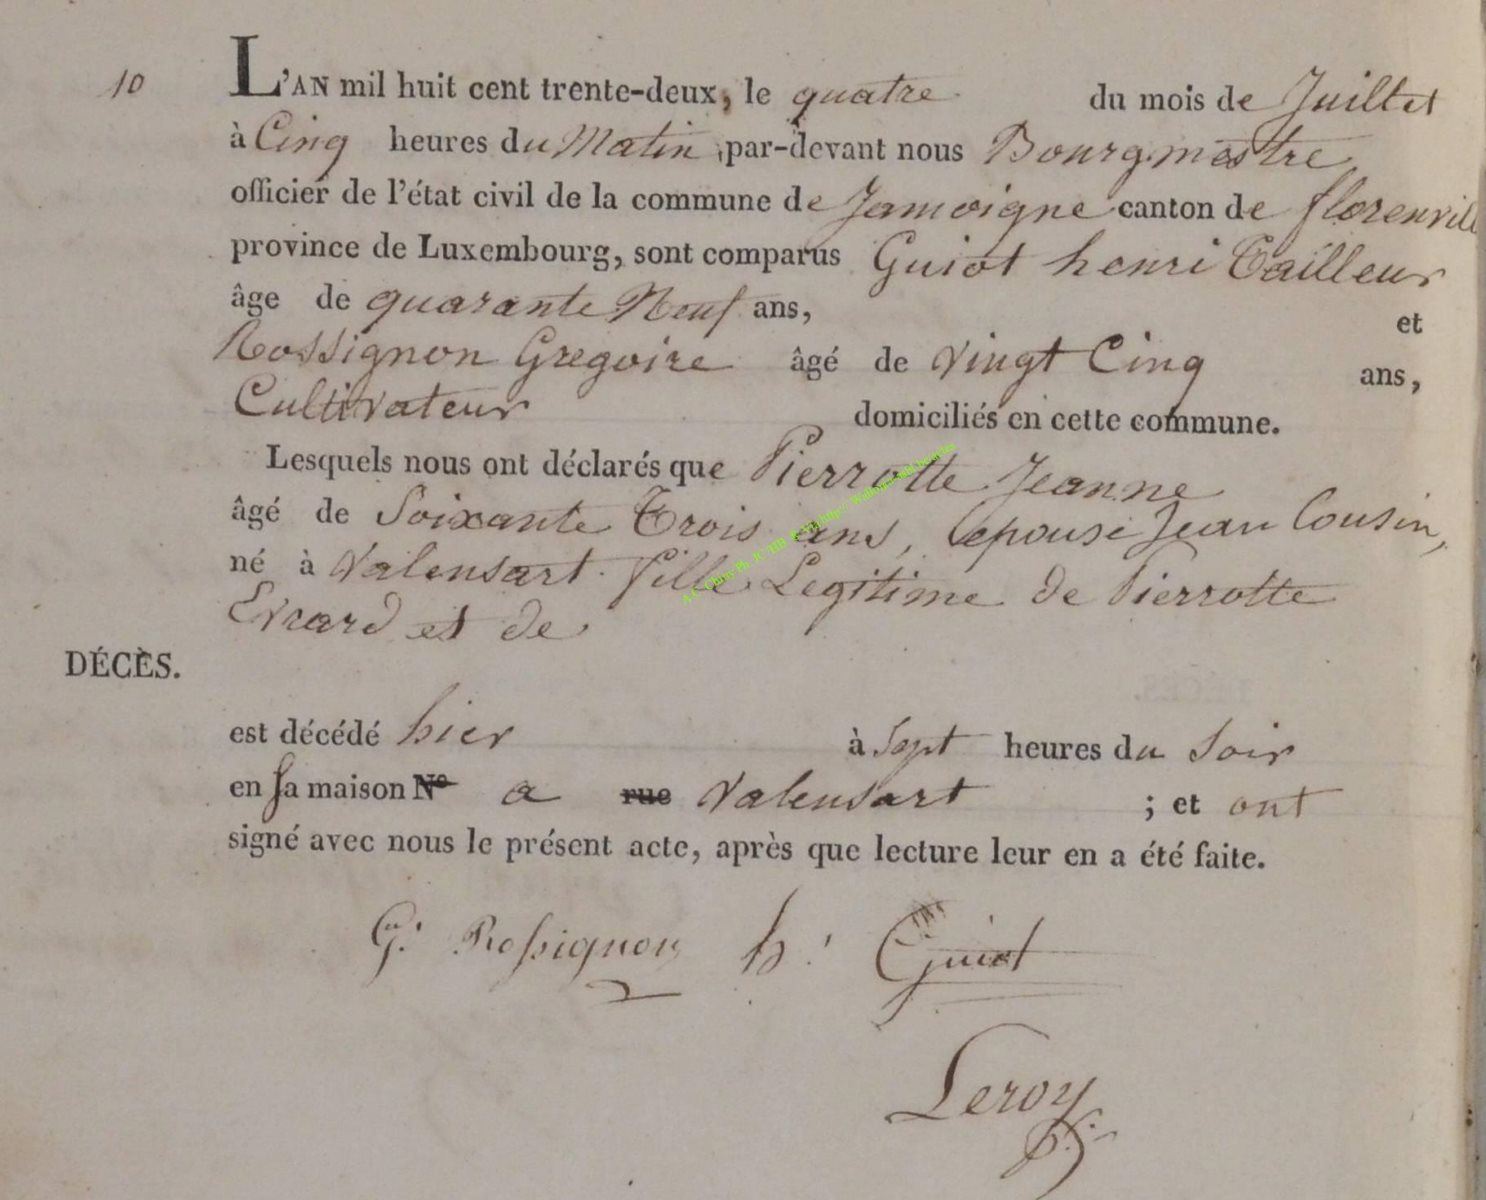 10 L'AN mil huit cent trente-deux, le quatre du mois de Juillet
à Cinq heures du Matin, par-devant nous Bourgmestre
officier de l'état civil de la commune de Jamoigne canton de florenville
province de Luxembourg, sont comparus Guiot henri Tailleur
âge de quarante Neuf ans, et
Rossignon Gregoire âgé de vingt Cinq ans,
Cultivateur domiciliés en cette commune.
Lesquels nous ont déclarés que Pierrotte Jeanne
âgé de Soixante Trois ans, Epouse Jean Cousin,
né à Valensart fille Legitime de Pierrotte
Evrard et de
DÉCÈS.
est décédé hier à Sept heures du Soir
en sa maison N° a rue Valensart ; et ont
signé avec nous le présent acte, après que lecture leur en a été faite.
G. Rossignon h. Guiot
Leroy